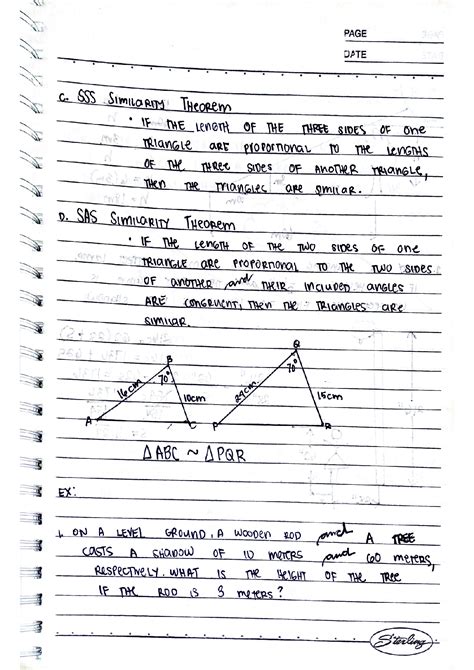 PAGE
DATE
C. SSS SIMILARITY THEOREM
• IF THE LENGTH OF THE THREE SIDES OF ONE
TRIANGLE ARE PROPORTIONAL TO THE LENGTHS
OF THE THREE SIDES OF ANOTHER TRIANGLE,
THEN THE TRIANGLES ARE SIMILAR.
D. SAS SIMILARITY THEOREM
• IF THE LENGTH OF THE TWO SIDES OF ONE
TRIANGLE ARE PROPORTIONAL TO THE TWO SIDES
OF ANOTHER and THEIR INCLUDED ANGLES
ARE CONGRUENT, THEN THE TRIANGLES ARE
SIMILAR.
B Q
70° 70°
16cm 10cm 24cm 15cm
A C P R
△ABC ~ △PQR
EX:
1. ON A LEVEL GROUND, A WOODEN ROD and A TREE
CASTS A SHADOW OF 10 METERS and 60 METERS,
RESPECTIVELY. WHAT IS THE HEIGHT OF THE TREE
IF THE ROD IS 3 METERS?
Sterling